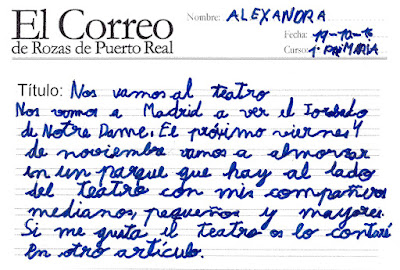 El Correo
de Rozas de Puerto Real
Nombre: ALEXANDRA
Fecha: 19-10-16
Curso: 1º PRIMARIA
Título: Nos vamos al teatro
Nos vamos a Madrid a ver el Jorobado
de Notre Dame. El próximo viernes 4
de noviembre vamos a almorzar
en un parque que hay al lado
del teatro con mis compañeros
medianos, pequeños y mayores.
Si me gusta el teatro os lo contaré
en otro artículo.